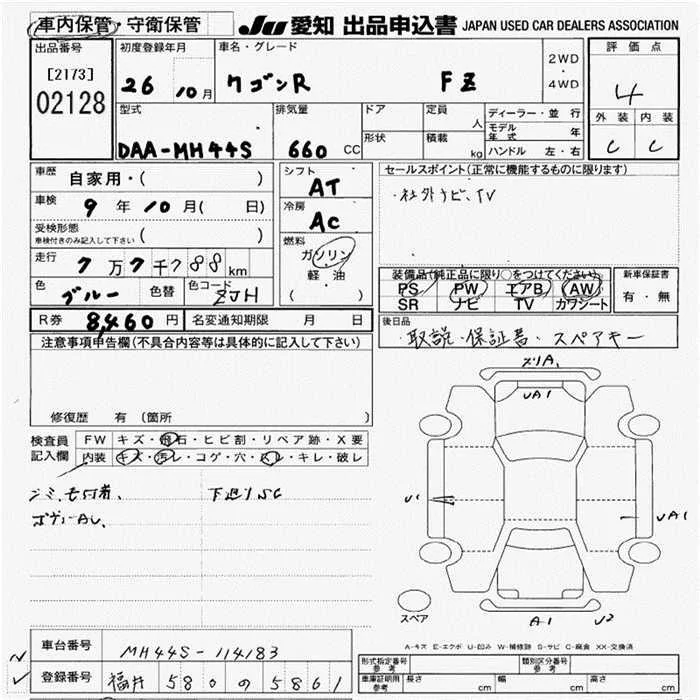 車内保管・守衛保管 JU 愛知 出品申込書 JAPAN USED CAR DEALERS ASSOCIATION
出品番号 初度登録年月 車名・グレード 2WD・4WD 評価点
[2173] 02128 26 10月 ワゴンR FZ 4
型式 排気量 ドア 定員 人 ディーラー・並行 外装 内装
DAA-MH44S 660 CC 形状 積載 kg モデル年式 年 C C
ハンドル 左・右
車歴 自家用・( ) シフト AT セールスポイント(正常に機能するものに限ります)
車検 9年10月( 日) 冷房 AC ・社外ナビ、TV
受検形態 車検付きのみ記入して下さい ( ) 燃料 ガソリン・軽油 ( )
走行 7万7千788km 装備品(純正品に限り○をつけてください) 新車保証書
色 ブルー 色替 色コード ZJH PS PW エアB AW 有・無
SR ナビ TV カワシート
R券 8,460円 名変通知期限 月 日 後日品
注意事項申告欄(不具合内容等は具体的に記入して下さい) ・取説・保証書・スペアキー
修復歴 有 (箇所
検査員記入欄 FW キズ・飛石・ヒビ割・リペア跡・X要
内装 キズ・汚レ・コゲ・穴・スレ・キレ・破レ
下廻りSC
UA1
U1
UA1
スペア A1 U2
A-キズ E-エクボ U-凹み W-補修跡 S-サビ C-腐食 XX-交換済
車台番号 MH44S-114183
登録番号 福井 580 の 5861
形式指定番号 参考 類別区分番号 参考
車庫証明用 参考 長さ cm 幅 cm 高さ cm